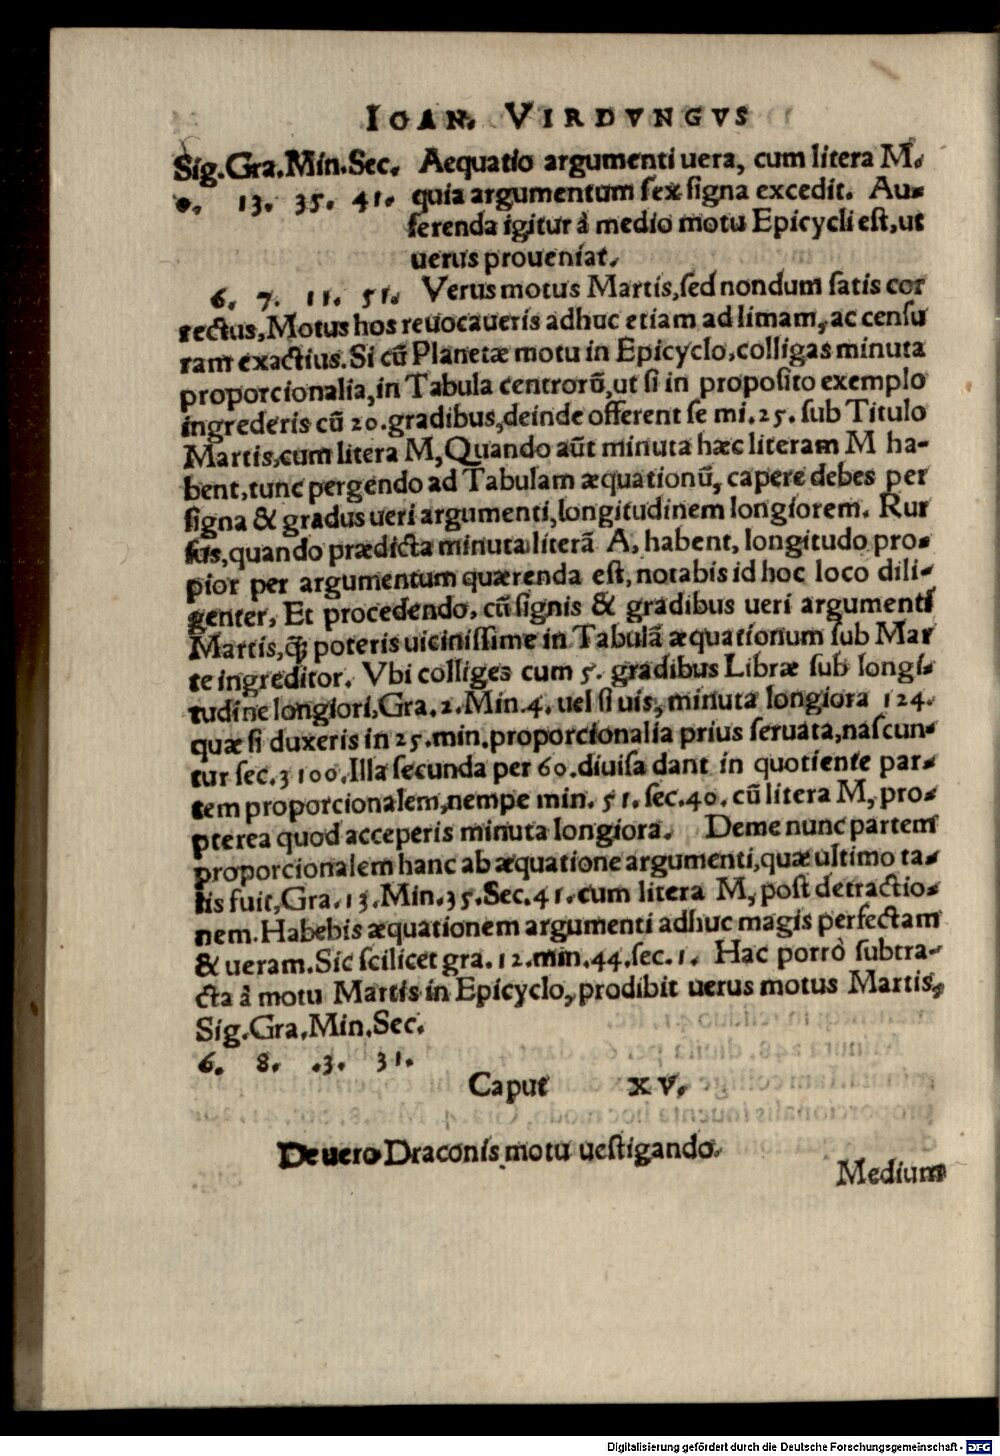 IOAN. VIRDVNGVS
Sig. Gra. Min. Sec. Aequatio argumenti uera, cum litera M.
0. 13. 35. 41. quia argumentum sex signa excedit. Au-
ferenda igitur à medio motu Epicycli est, ut
uerus proueniat.
6. 7. 11. 51. Verus motus Martis, sed nondum satis cor
rectus, Motus hos reuocaueris adhuc etiam ad limam, ac censu
ram exactius. Si cū Planetæ motu in Epicyclo, colligas minuta
proporcionalia, in Tabula centrorū, ut si in proposito exemplo
ingrederis cū 20. gradibus, deinde offerent se mi. 25. sub Titulo
Martis, cum litera M, Quando aūt minuta hæc literam M ha-
bent, tunc pergendo ad Tabulam æquationū, capere debes per
signa & gradus ueri argumenti, longitudinem longiorem. Rur
sus, quando prædicta minuta literā A, habent, longitudo pro-
pior per argumentum quærenda est, notabis id hoc loco dili-
genter, Et procedendo, cū signis & gradibus ueri argumenti
Martis, ꝙ̃ poteris uicinissime in Tabulā æquationum sub Mar
te ingreditor. Vbi colliges cum 5. gradibus Libræ sub longi-
tudine longiori, Gra. 2. Min. 4. uel si uis, minuta longiora 124.
quæ si duxeris in 25. min. proporcionalia prius seruata, nascun-
tur sec. 3100. Illa secunda per 60. diuisa dant in quotiente par-
tem proporcionalem, nempe min. 51. sec. 40. cū litera M, pro-
pterea quod acceperis minuta longiora. Deme nunc partem
proporcionalem hanc ab æquatione argumenti, quæ ultimo ta-
lis fuit, Gra. 13. Min. 35. Sec. 41. cum litera M, post detractio-
nem. Habebis æquationem argumenti adhuc magis perfectam
& ueram. Sic scilicet gra. 12. min. 44. sec. 1. Hac porrò subtra-
cta à motu Martis in Epicyclo, prodibit uerus motus Martis,
Sig. Gra. Min. Sec.
6. 8. .3. 31.
Caput XV.
De uero Draconis motu uestigando.
Medium
Digitalisierung gefördert durch die Deutsche Forschungsgemeinschaft - DFG